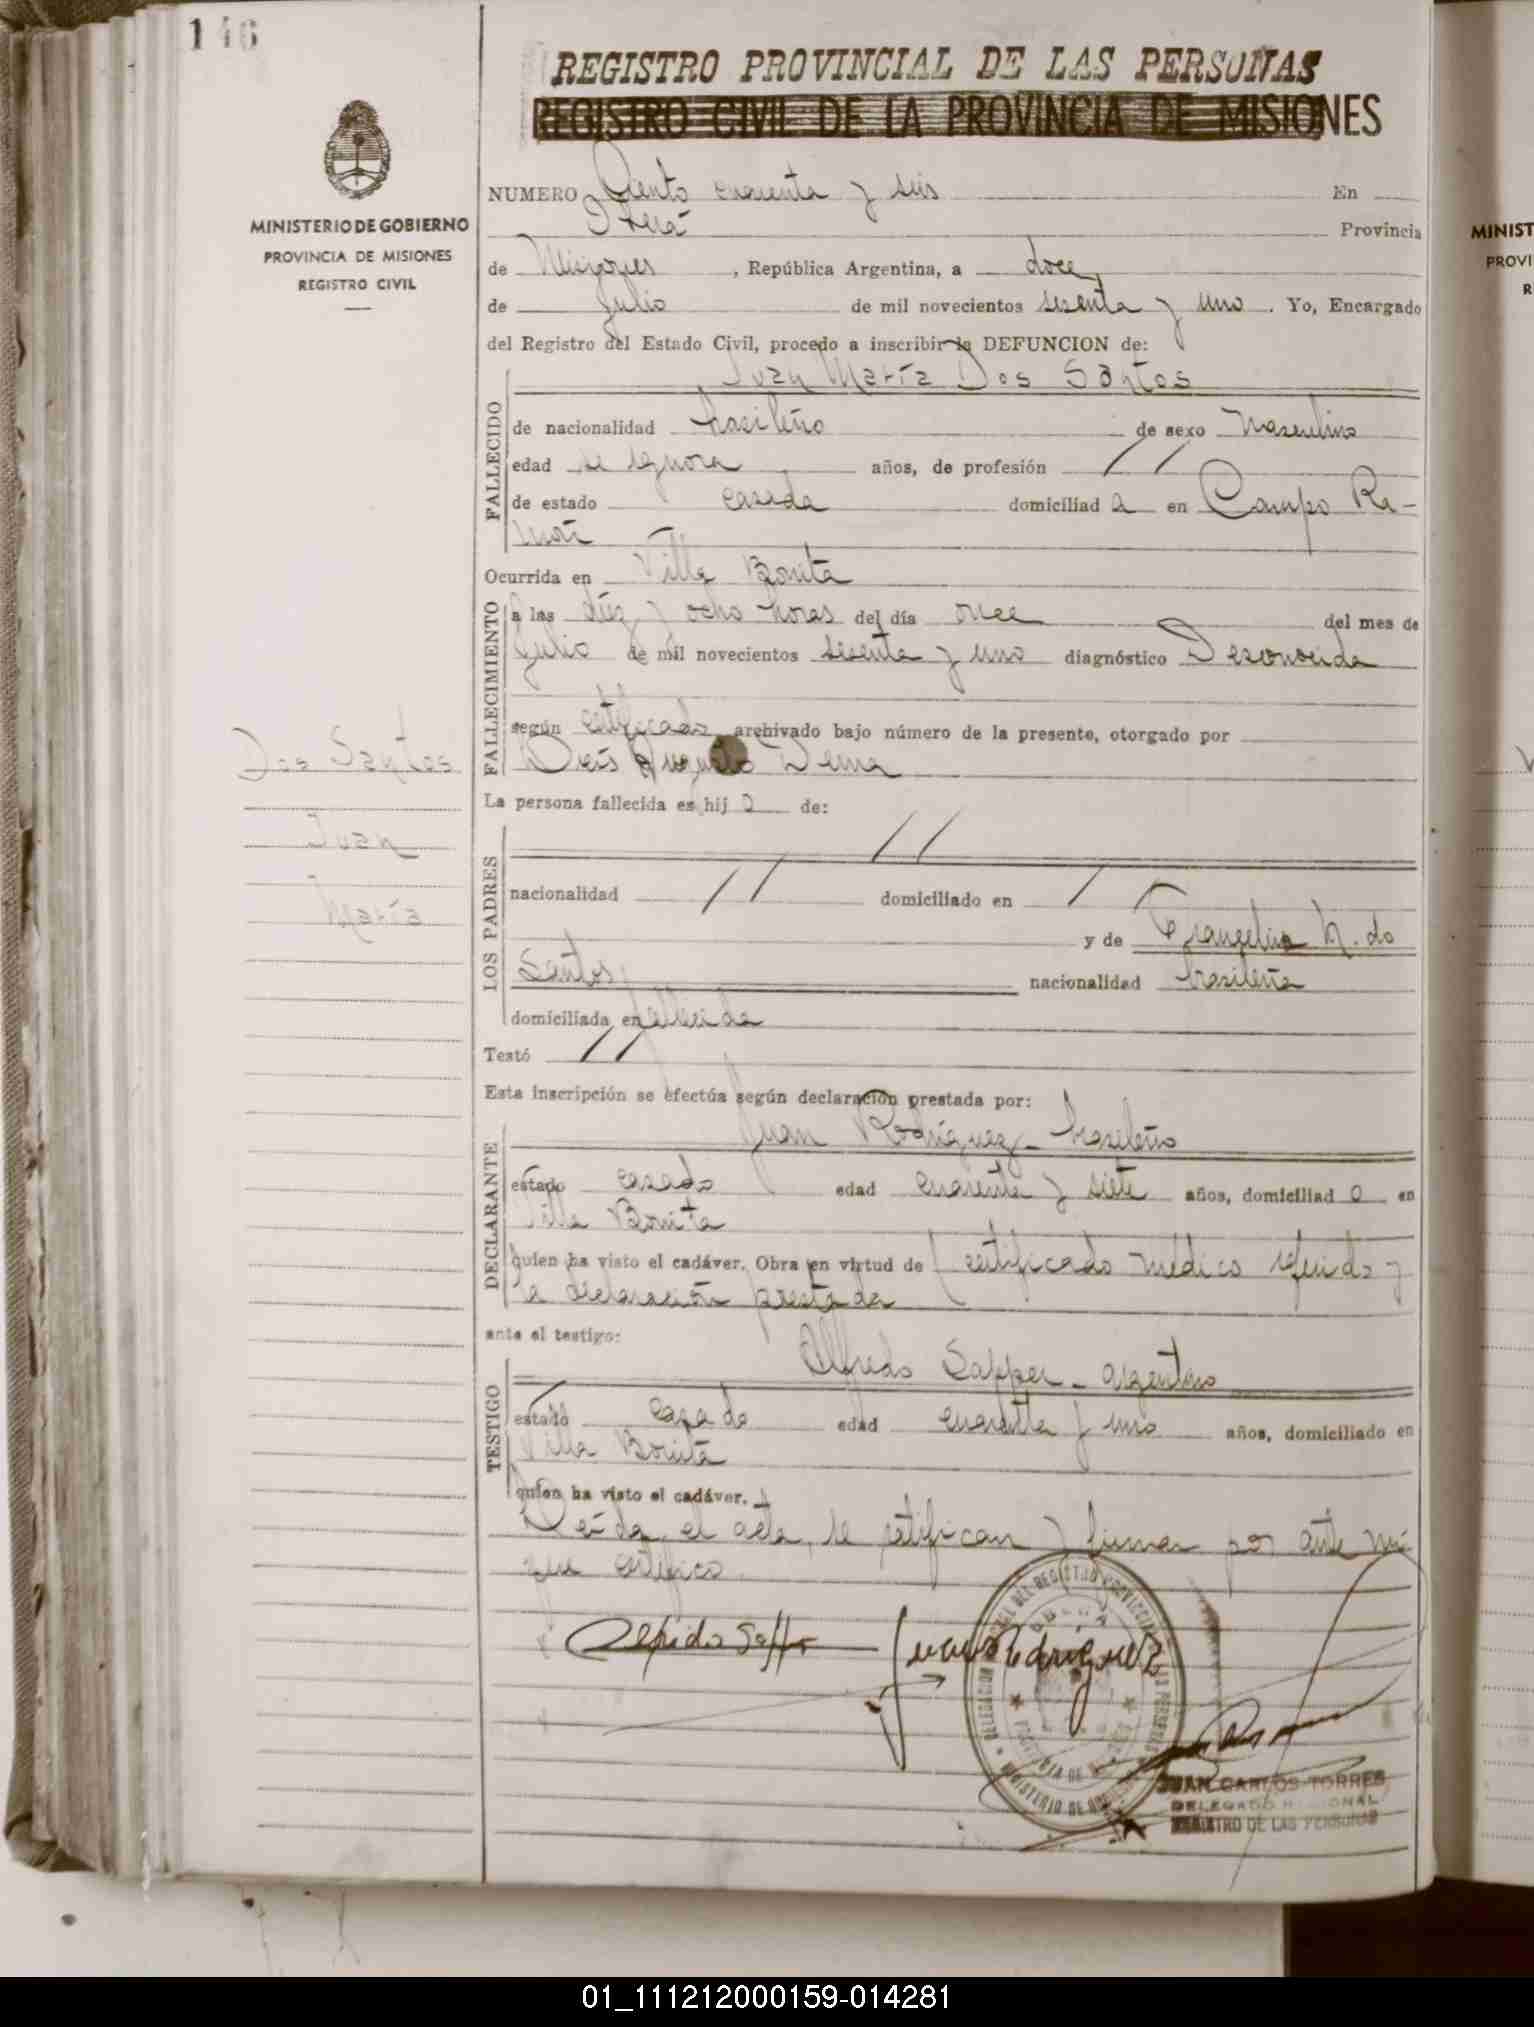 146
REGISTRO PROVINCIAL DE LAS PERSONAS
REGISTRO CIVIL DE LA PROVINCIA DE MISIONES
MINISTERIO DE GOBIERNO
PROVINCIA DE MISIONES
REGISTRO CIVIL
NUMERO Ciento cuarenta y seis En
Oberá Provincia
de Misiones, República Argentina, a doce
de Julio de mil novecientos sesenta y uno. Yo, Encargado
del Registro del Estado Civil, procedo a inscribir la DEFUNCION de:
Juan María Dos Santos
FALLECIDO
de nacionalidad brasileño de sexo Masculino
edad se ignora años, de profesión //
de estado casada domiciliad a en Campo Ra-
món
Ocurrida en Villa Bonita
FALLECIMIENTO
a las diez y ocho horas del día once del mes de
Julio de mil novecientos sesenta y uno diagnóstico Desconocida
según certificado archivado bajo número de la presente, otorgado por
Luis Augusto Derna
Dos Santos
Juan
María
La persona fallecida es hij o de:
LOS PADRES
//
nacionalidad // domiciliado en /
y de Evangelina M. do
Santos nacionalidad brasileña
domiciliada en fallecida
Testó //
Esta inscripción se efectúa según declaración prestada por:
DECLARANTE
Juan Rodríguez - brasileño
estado casado edad cuarenta y siete años, domiciliad o en
Villa Bonita
quien ha visto el cadáver. Obra en virtud de certificado médico referido y
la declaración prestada
ante el testigo:
TESTIGO
Alfredo Sapper - argentino
estado casado edad cuarenta y uno años, domiciliado en
Villa Bonita
quien ha visto el cadáver.
Leída el acta, se ratifican y firman por ante mí
que certifico.
Juan Rodriguez
JUAN CARLOS TORRES
DELEGADO REGIONAL
REGISTRO DE LAS PERSONAS
MINIST
PROVI
R
01_111212000159-014281